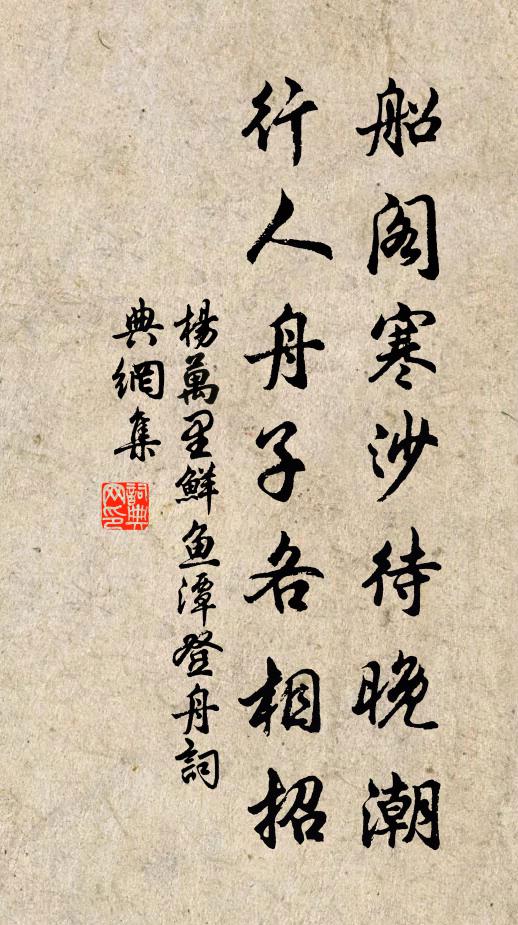 船阁寒沙待晚潮
行人舟子各相招
楊萬里鮮魚潭登舟詞
典網集
詞典
网印